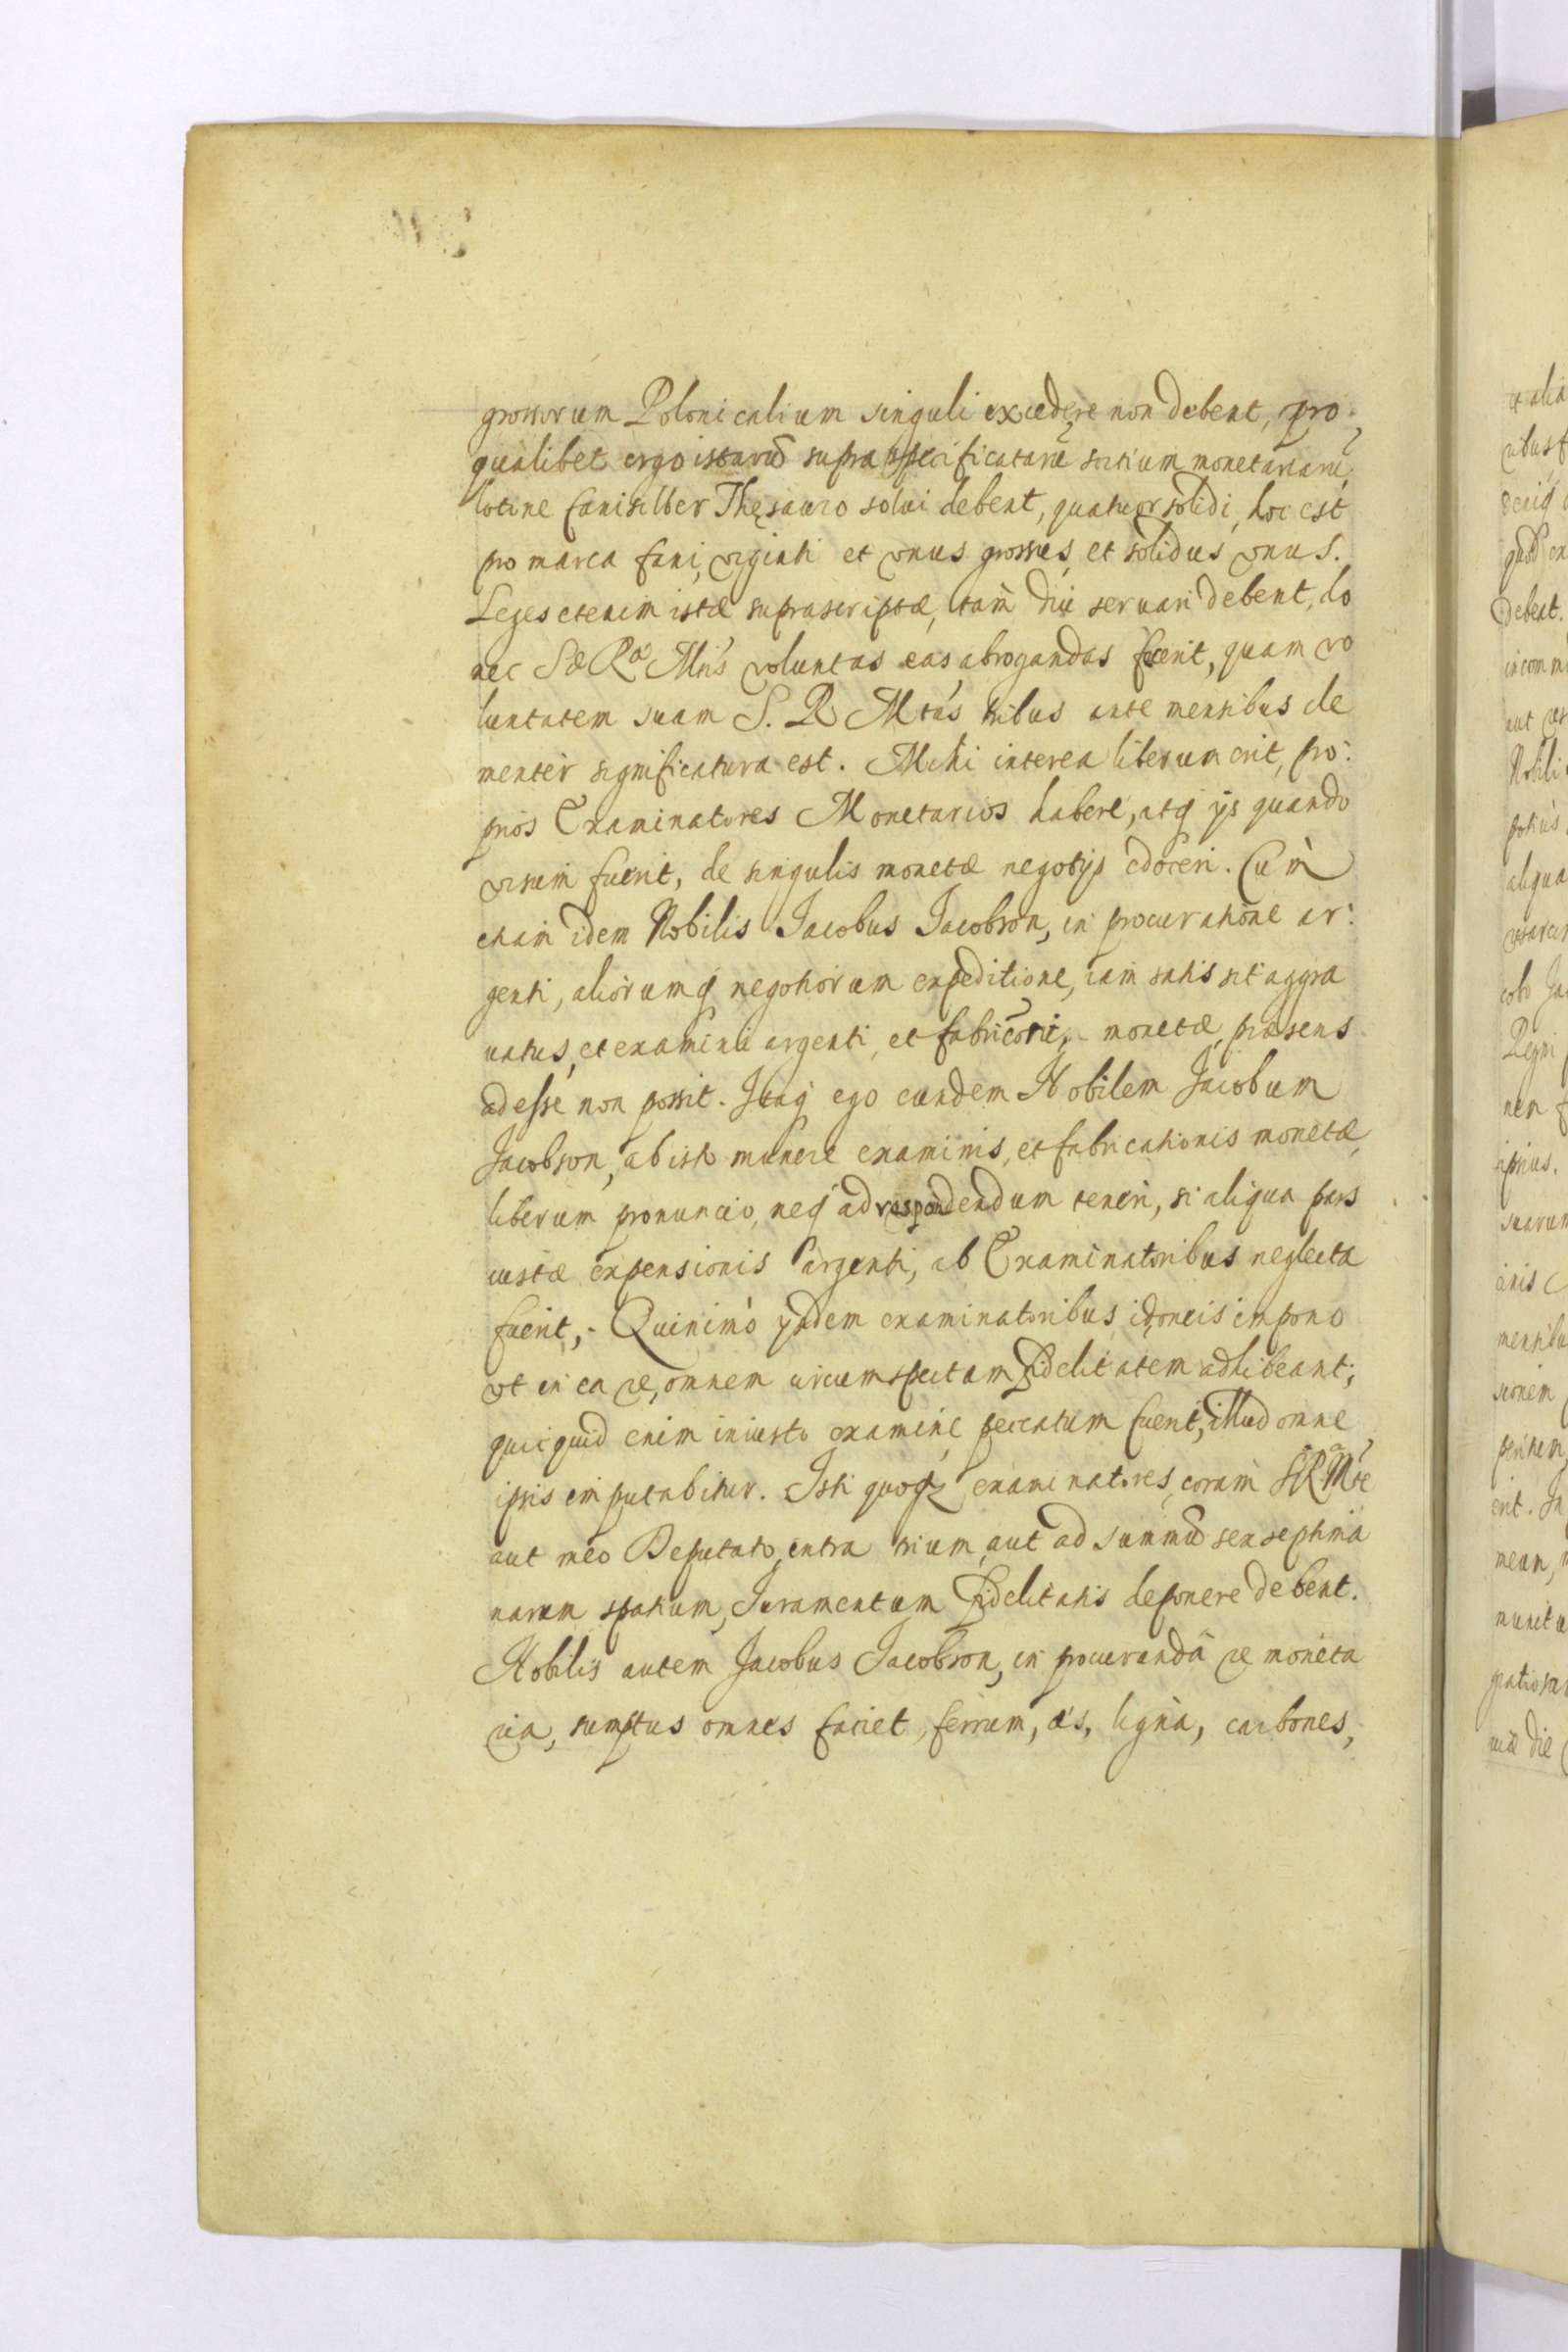 grossorum Polonicalium singuli excedere non debent, pro
qualibet ergo istarū supra specificatarū sortium monetariarū,
lotone fanisilber Thesauro solui debent, quatuor solidi, hoc est
pro marca fani, viginti et vnus grossus, et solidus vnus.
Leges etenim istæ suprascriptæ, tam diu seruari debent, do
nec Sæ Ræ Mtis voluntas eas abrogandas fuerit, quam vo
luntatem suam S. R Mtas tribus ante mensibus cle
menter significatura est. Mihi interea liberum erit, pro:
prios Examinatores Monetarios habere, atq ijs quando
visum fuerit, de singulis monetæ negotijs edoceri. Cum
etiam idem Nobilis Jacobus Jacobson, in procuratione ar:
genti, aliorumq negotiorum expeditione, iam satis sit aggra
uatus, et examini argenti, et fabricōni, monetæ, præsens
adesse non possit. Itaq ego eundem Nobilem Jacobum
Jacobson, ab isto munere examinis, et fabricationis monetæ,
liberum pronuncio, neq ad respondendum teneri, si aliqua pars
iustæ expensionis argenti, ab Examinatoribus neglecta
fuerit,- Quinimo ijsdem examinatoribus idoneis impono
vt in ea re, omnem circumspectam fidelitatem adhibeant;
quicquid enim iniusto examine peccatum fuerit, illud omne
ipsis imputabitur. Isti quoqz examinatores, coram S R Mte
aut meo Deputato, intra trium, aut ad summū sex septima
narum spatium, Juramentum fidelitatis deponere debent.
Nobilis autem Jacobus Jacobson, in procuranda re moneta
ria, sumptus omnes faciet, ferrum, æs, ligna, carbones,